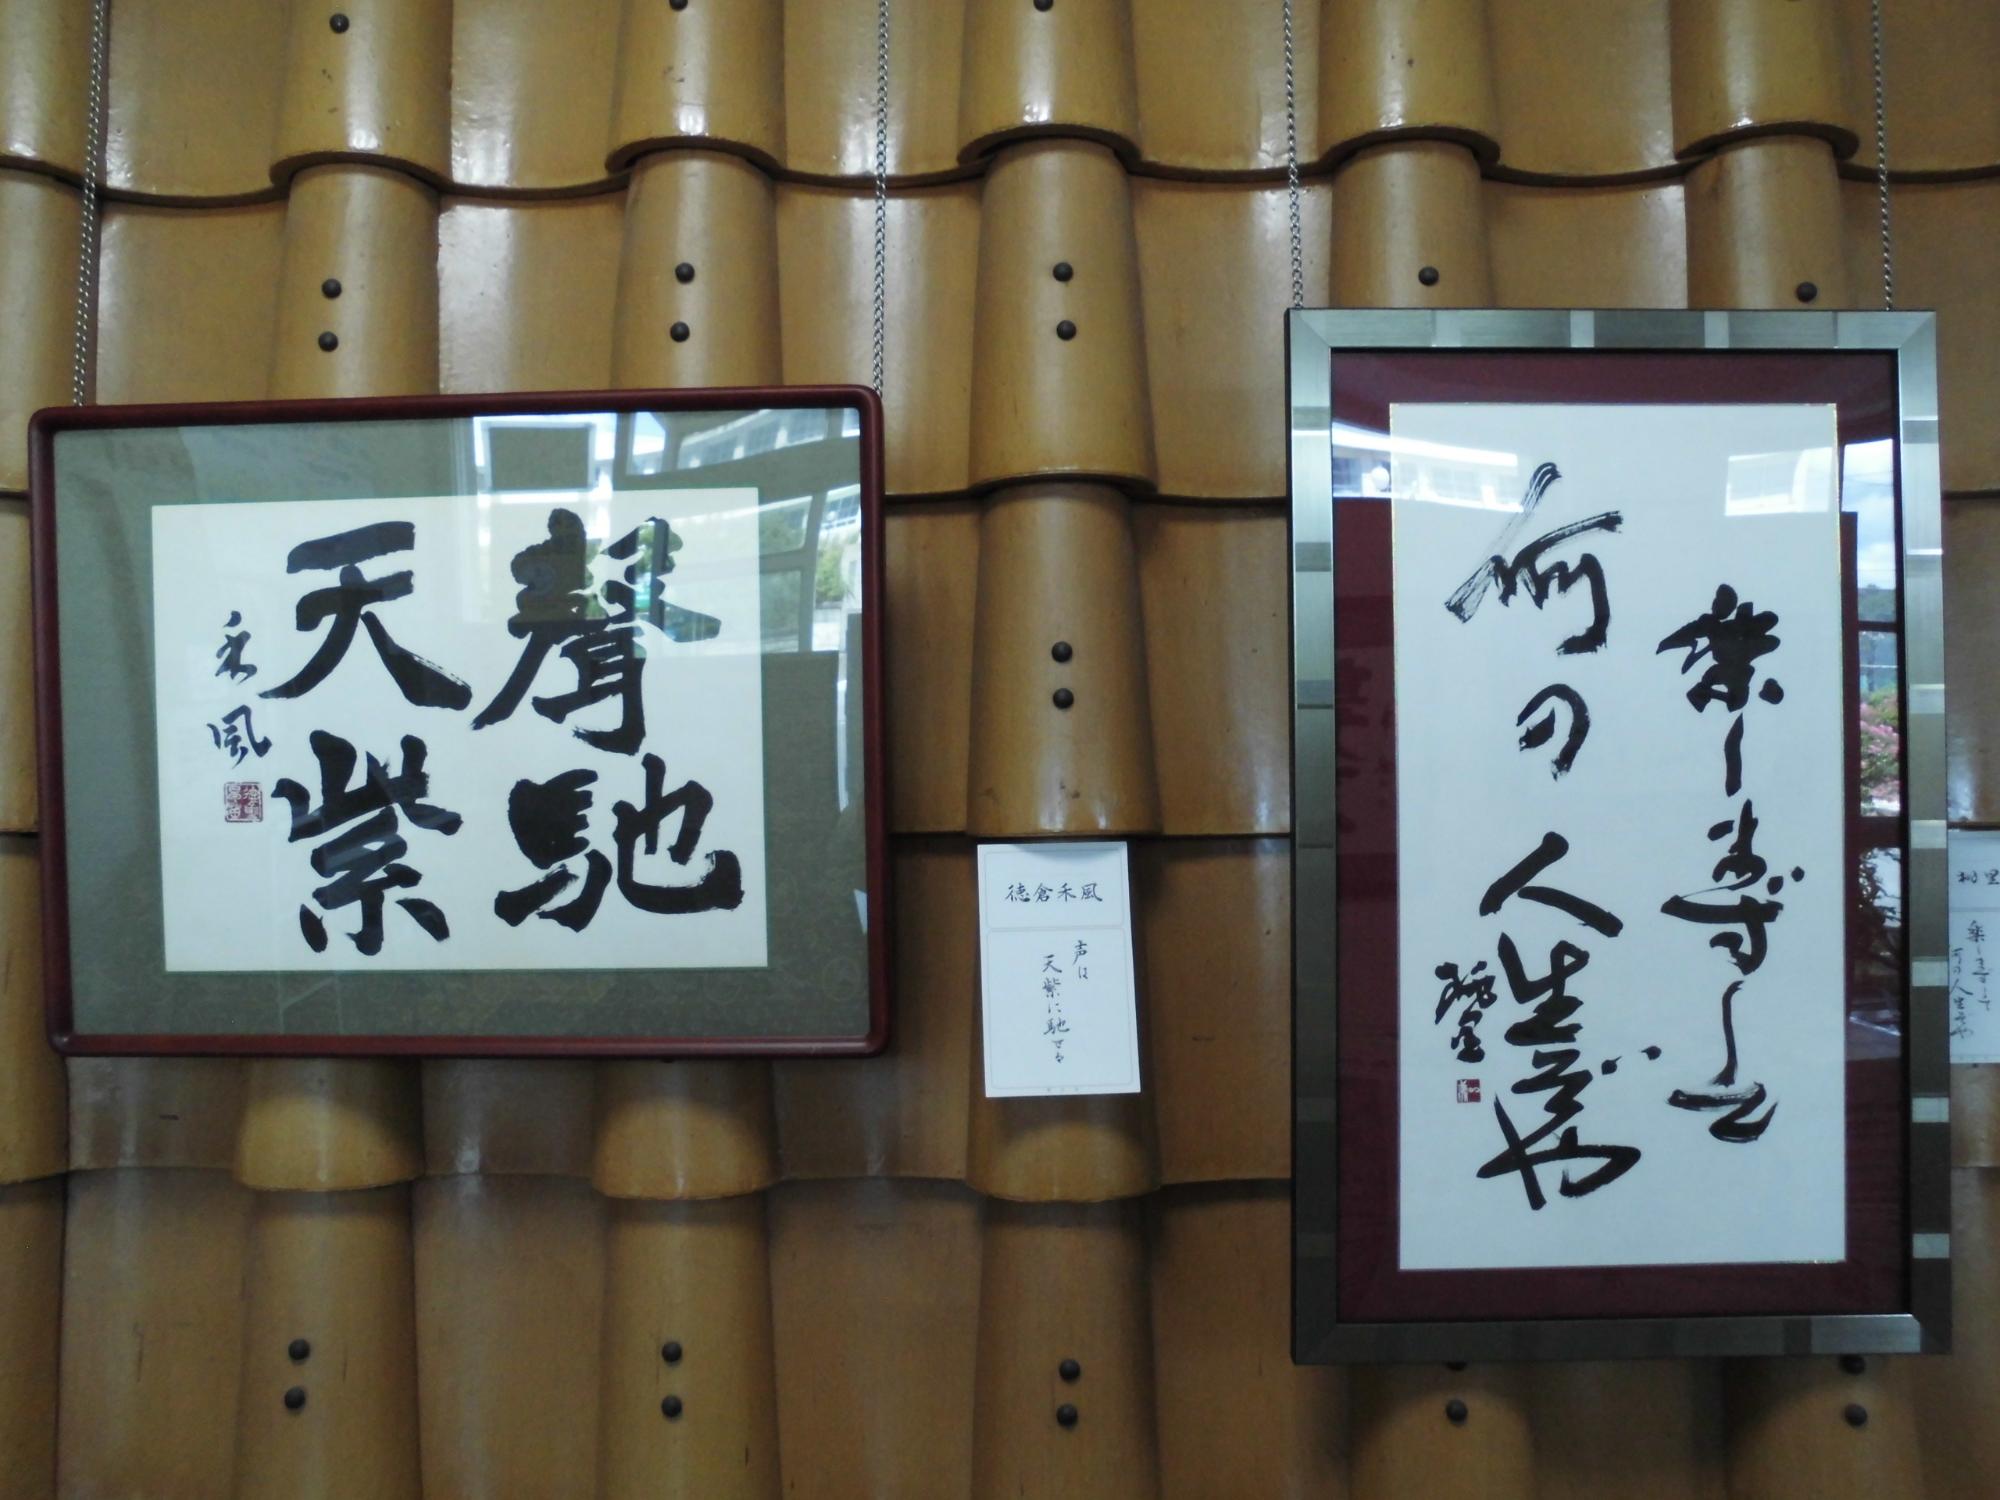 聲馳
天紫
禾風
徳倉禾風
声は
天紫に馳せる
楽しまずして
何の人生ぞや
桃里
楽しまずして
何の人生ぞや